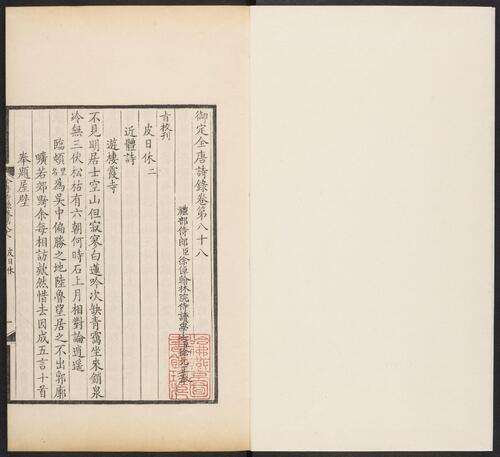 御定全唐詩錄卷第八十八
禮部侍郎臣徐倬翰林院侍讀學士臣徐元正奉
旨校刊
皮日休二
近體詩
遊棲霞寺
不見明居士空山但寂寥白蓮吟次缺青靄坐來銷泉
冷無三伏松枯有六朝何時石上月相對論逍遙
臨頓里名為吳中偏勝之地陸魯望居之不出郛廓
曠若郊野余每相訪欵然惜去因成五言十首
奉題屋壁
皮日休
一